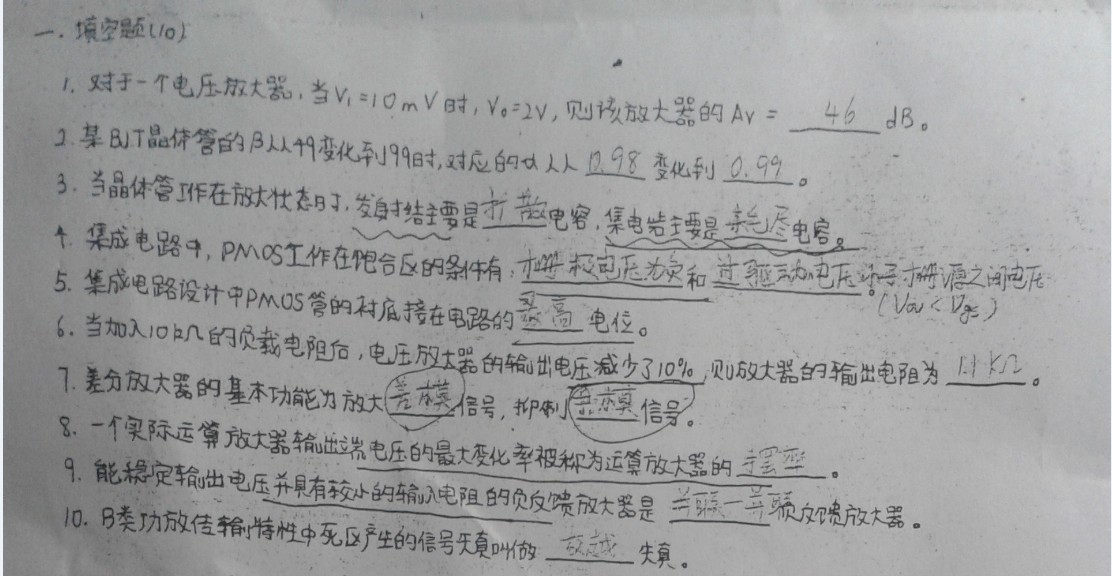 一. 填空题(10)
1. 对于一个电压放大器,当V₁=10mV时,V₀=2V,则该放大器的Av= 46 dB。
2. 某BJT晶体管的β从49变化到99时,对应的α从 0.98 变化到 0.99 。
3. 当晶体管工作在放大状态时,发射结主要是扩散电容,集电结主要是耗尽电容。
4. 集成电路中,PMOS工作在饱合区的条件有,栅极电压为负和过驱动电压 栅源之间电压
(Vov<Vgs)
5. 集成电路设计中PMOS管的衬底接在电路的最高电位。
6. 当加入10kΩ的负载电阻后,电压放大器的输出电压减少了10%,则放大器的输出电阻为 1.1KΩ 。
7. 差分放大器的基本功能为放大差模信号,抑制共模信号。
8. 一个实际运算放大器输出端电压的最大变化率被称为运算放大器的 摆率 。
9. 能稳定输出电压并具有较小的输入电阻的负反馈放大器是 并联-并联反馈放大器。
10. B类功放传输特性中死区产生的信号失真叫做 交越 失真。